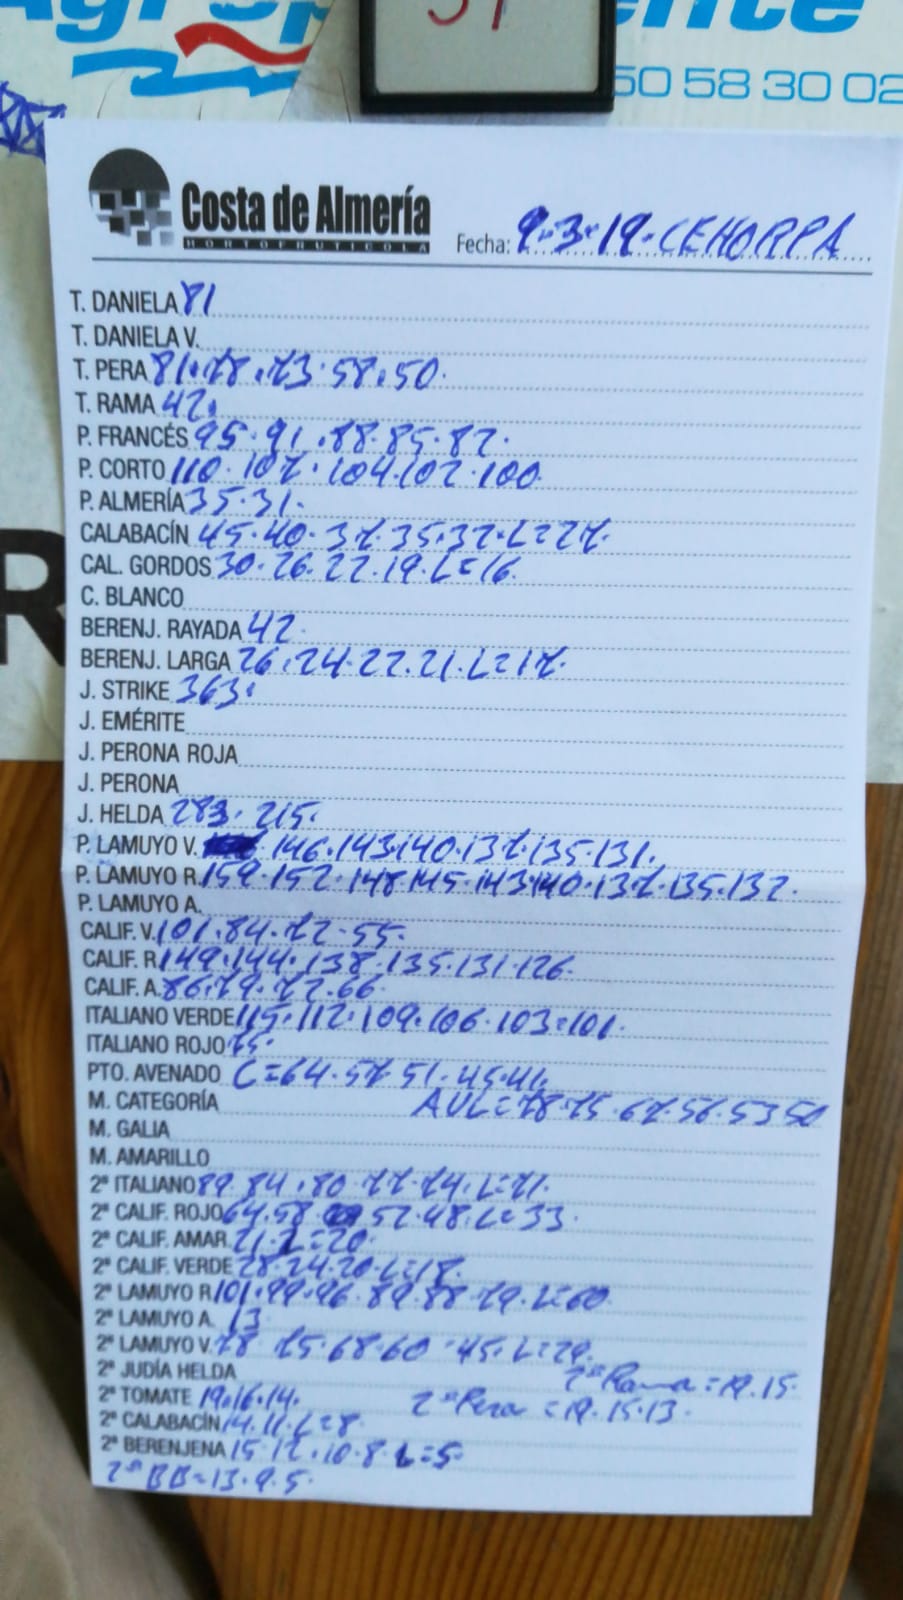 50 58 30 02
Costa de Almería
HORTOFRUTICOLA
Fecha: 9.3.19. CEHORPA
T. DANIELA 81
T. DANIELA V.
T. PERA 81.78.73.58.50.
T. RAMA 42.
P. FRANCÉS 95.91.88.85.82.
P. CORTO 110.107.104.102.100
P. ALMERÍA 35.31.
CALABACÍN 45.40.37.35.32.L=27.
CAL. GORDOS 30.26.22.19.L=16.
C. BLANCO
BERENJ. RAYADA 42.
BERENJ. LARGA 26.24.22.21.L=17.
J. STRIKE 363.
J. EMÉRITE
J. PERONA ROJA
J. PERONA
J. HELDA 283.215.
P. LAMUYO V. 146.143.140.137.135.131.
P. LAMUYO R. 159.152.148.145.143.140.137.135.132.
P. LAMUYO A.
CALIF. V. 101.84.72.55.
CALIF. R 149.144.138.135.131.126.
CALIF. A. 86.79.72.66.
ITALIANO VERDE 115.112.109.106.103.101.
ITALIANO ROJO 75.
PTO. AVENADO C=64.57.51.45.41.
M. CATEGORÍA AVL=78.75.67.56.53.50
M. GALIA
M. AMARILLO
2ª ITALIANO 89.84.80.77.74.L=71.
2ª CALIF. ROJO 64.58.52.48.L=33.
2ª CALIF. AMAR. 21.L=20.
2ª CALIF. VERDE 28.24.20.L=18.
2ª LAMUYO R. 101.99.96.89.88.79.L=60.
2ª LAMUYO A. 13
2ª LAMUYO V. 78.75.68.60.45.L=29.
2ª JUDÍA HELDA 2ª Rama=19.15.
2ª TOMATE 19.16.14. 2ª Pera=19.15.13.
2ª CALABACÍN 14.11.L=8.
2ª BERENJENA 15.12.10.8.L=5.
2ª BB=13.9.5.